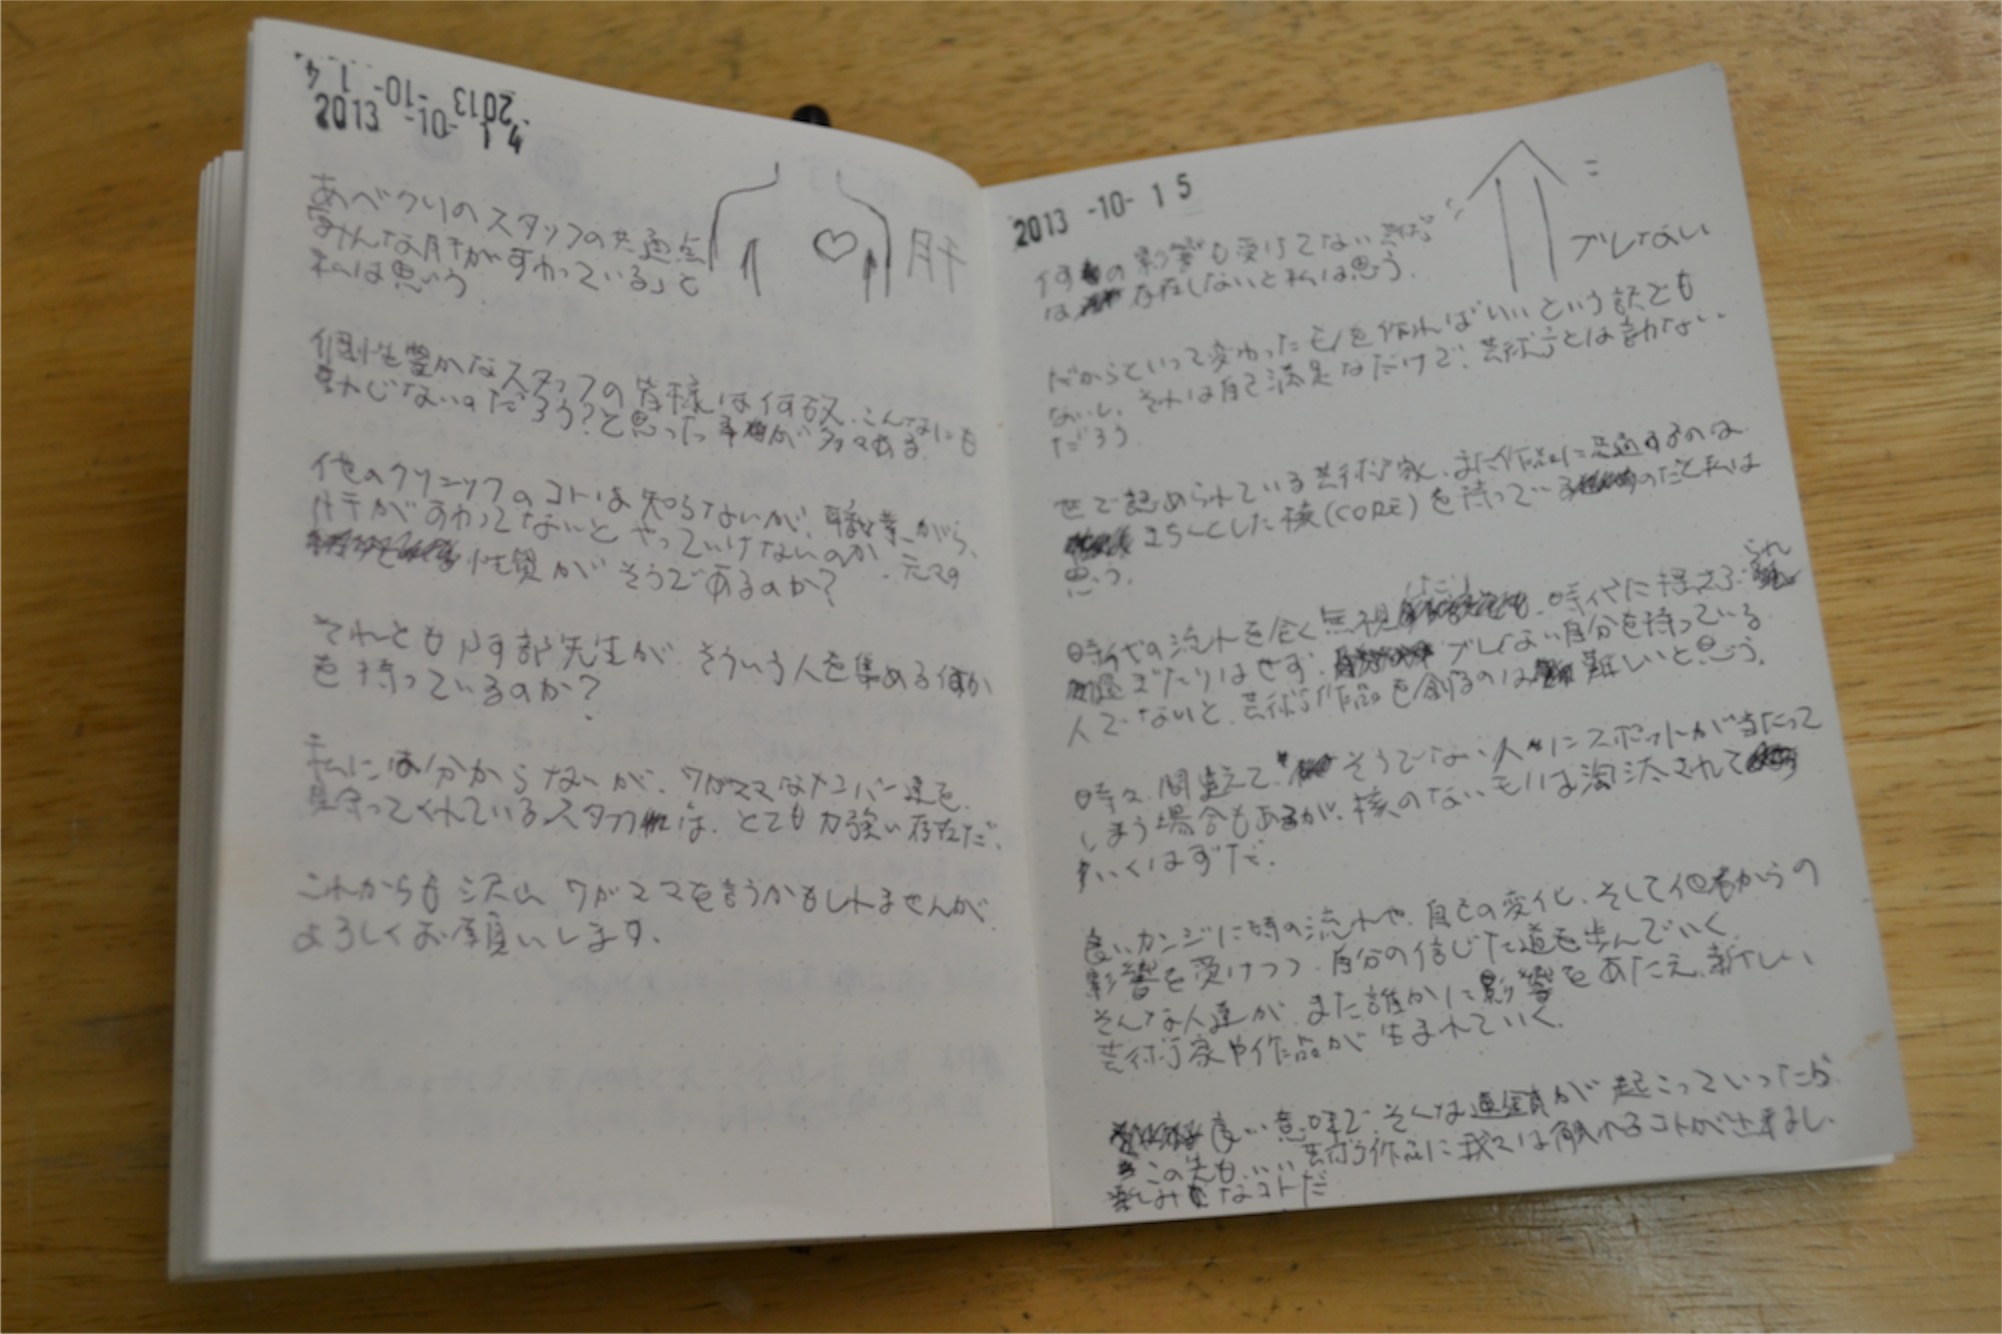 2013 -10- 1 4
2013 -10- 1 4
あべクリのスタッフの共通点
「みんな肝がすわっている」と
私は思う
肝
個性豊かなスタッフの皆様は何故、こんなにも
動じないのだろう?と思った事が多々ある
他のクリニックのコトは知らないが、職業がら、
肝がすわってないとやっていけないのか、元々の
性質がそうであるのか?
それとも阿部先生が そういう人を集める何か
を持っているのか?
私には分からないが、ワガママなメンバー達を、
見守ってくれているスタッフは、とても力強い存在だ、
これからも沢山 ワガママを言うかもしれませんが
よろしくお願いします、
2013 -10- 1 5
ブレない
何の影響も受けてない芸術
は 存在しないと私は思う、
だからといって変わったモノを作ればいいという訳でも
ないし、それは自己満足なだけで、芸術とは言わない
だろう
世で認められている芸術家、また作品に共通するのは
きちんとした核(CORE)を持っているのだと私は
思う、
時代の流れを全く無視 時代に捉え られ
過ぎたりはせず、ブレない自分を持っている
人でないと、芸術作品を創るのは難しいと思う、
時々、間違えて、そうでない人々にスポットが当たって
しまう場合もあるが、核のないモノは淘汰されて
いくはずだ、
良いカンジに時の流れや、自己の変化、そして他者からの
影響を受けつつ、自分の信じた道を歩んでいく
そんな人達が、また誰かに影響をあたえ、新しい
芸術家や作品が生まれていく、
良い意味で、そんな連鎖が 起こっていったら
この先も、いい芸術作品に我々は触れるコトが出来るし、
楽しみなコトだ